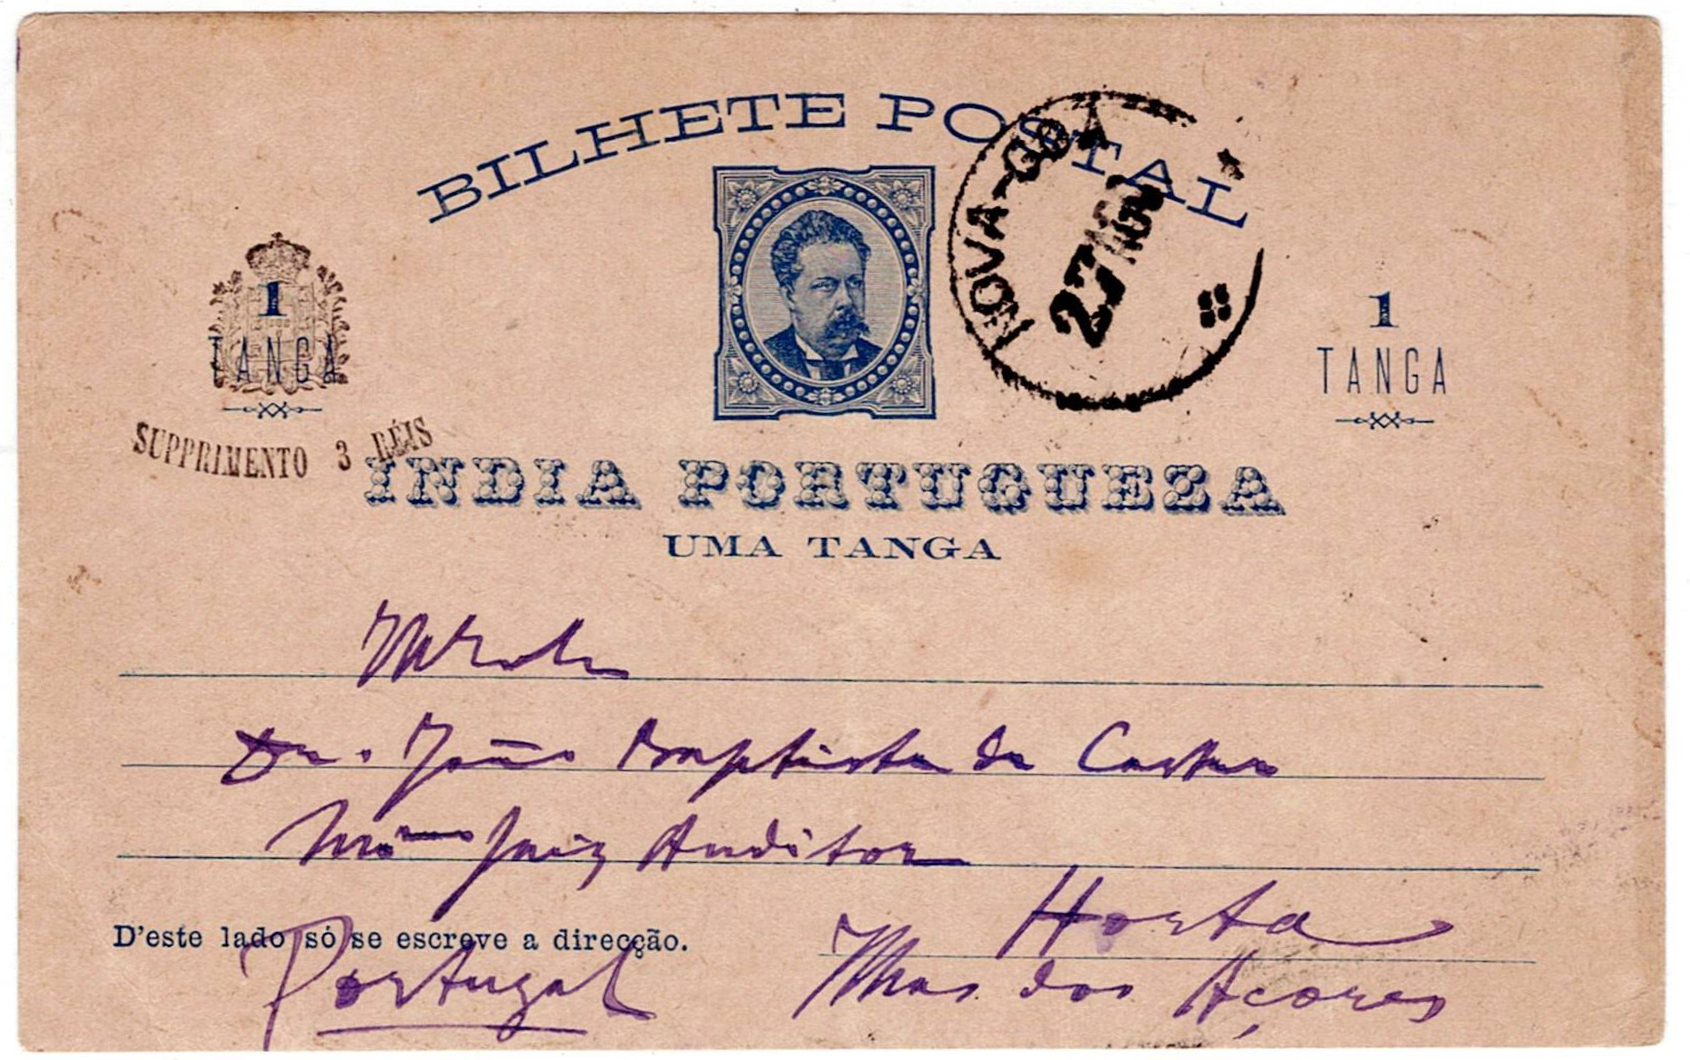 BILHETE POSTAL
NOVA-GOA
27
1
TANGA
1
TANGA
SUPPRIMENTO 3 RÉIS
INDIA PORTUGUEZA
UMA TANGA
Dr. João Baptista de Castro
Juiz Auditor
Horta
D'este lado só se escreve a direcção.
Portugal
Ilhas dos Açores